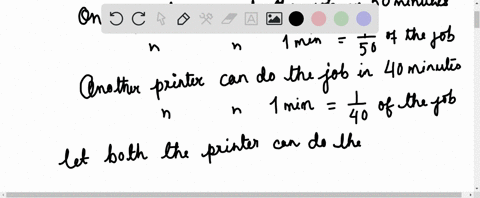 On minutes
n n 1 min = 1/50 of the job
Another printer can do the job in 40 minutes
n n 1 min = 1/40 of the job
let both the printer can do the